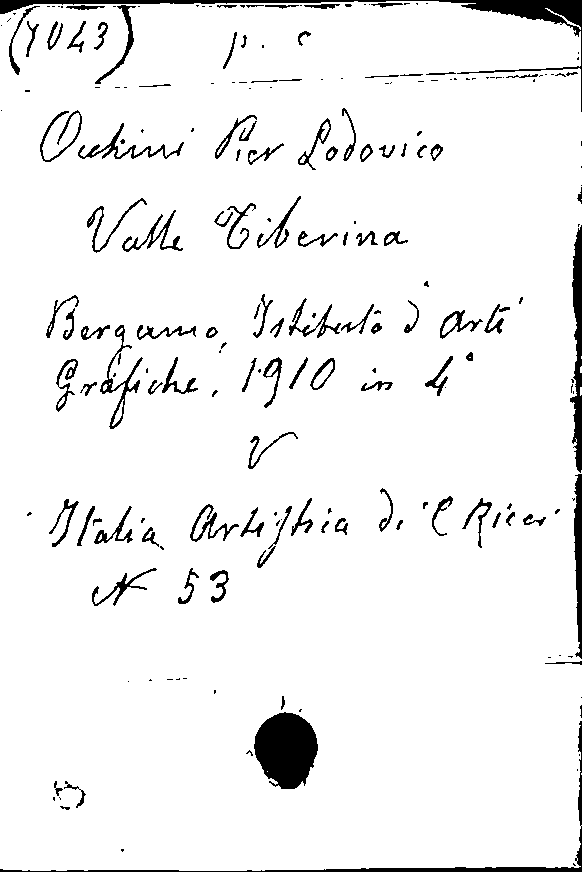 (7043) p. c
Occhini Pier Lodovico
Valle Tiberina
Bergamo, Istituto d'Arti
Grafiche, 1910 in 4°
V
Italia Artistica di C Ricci
N 53